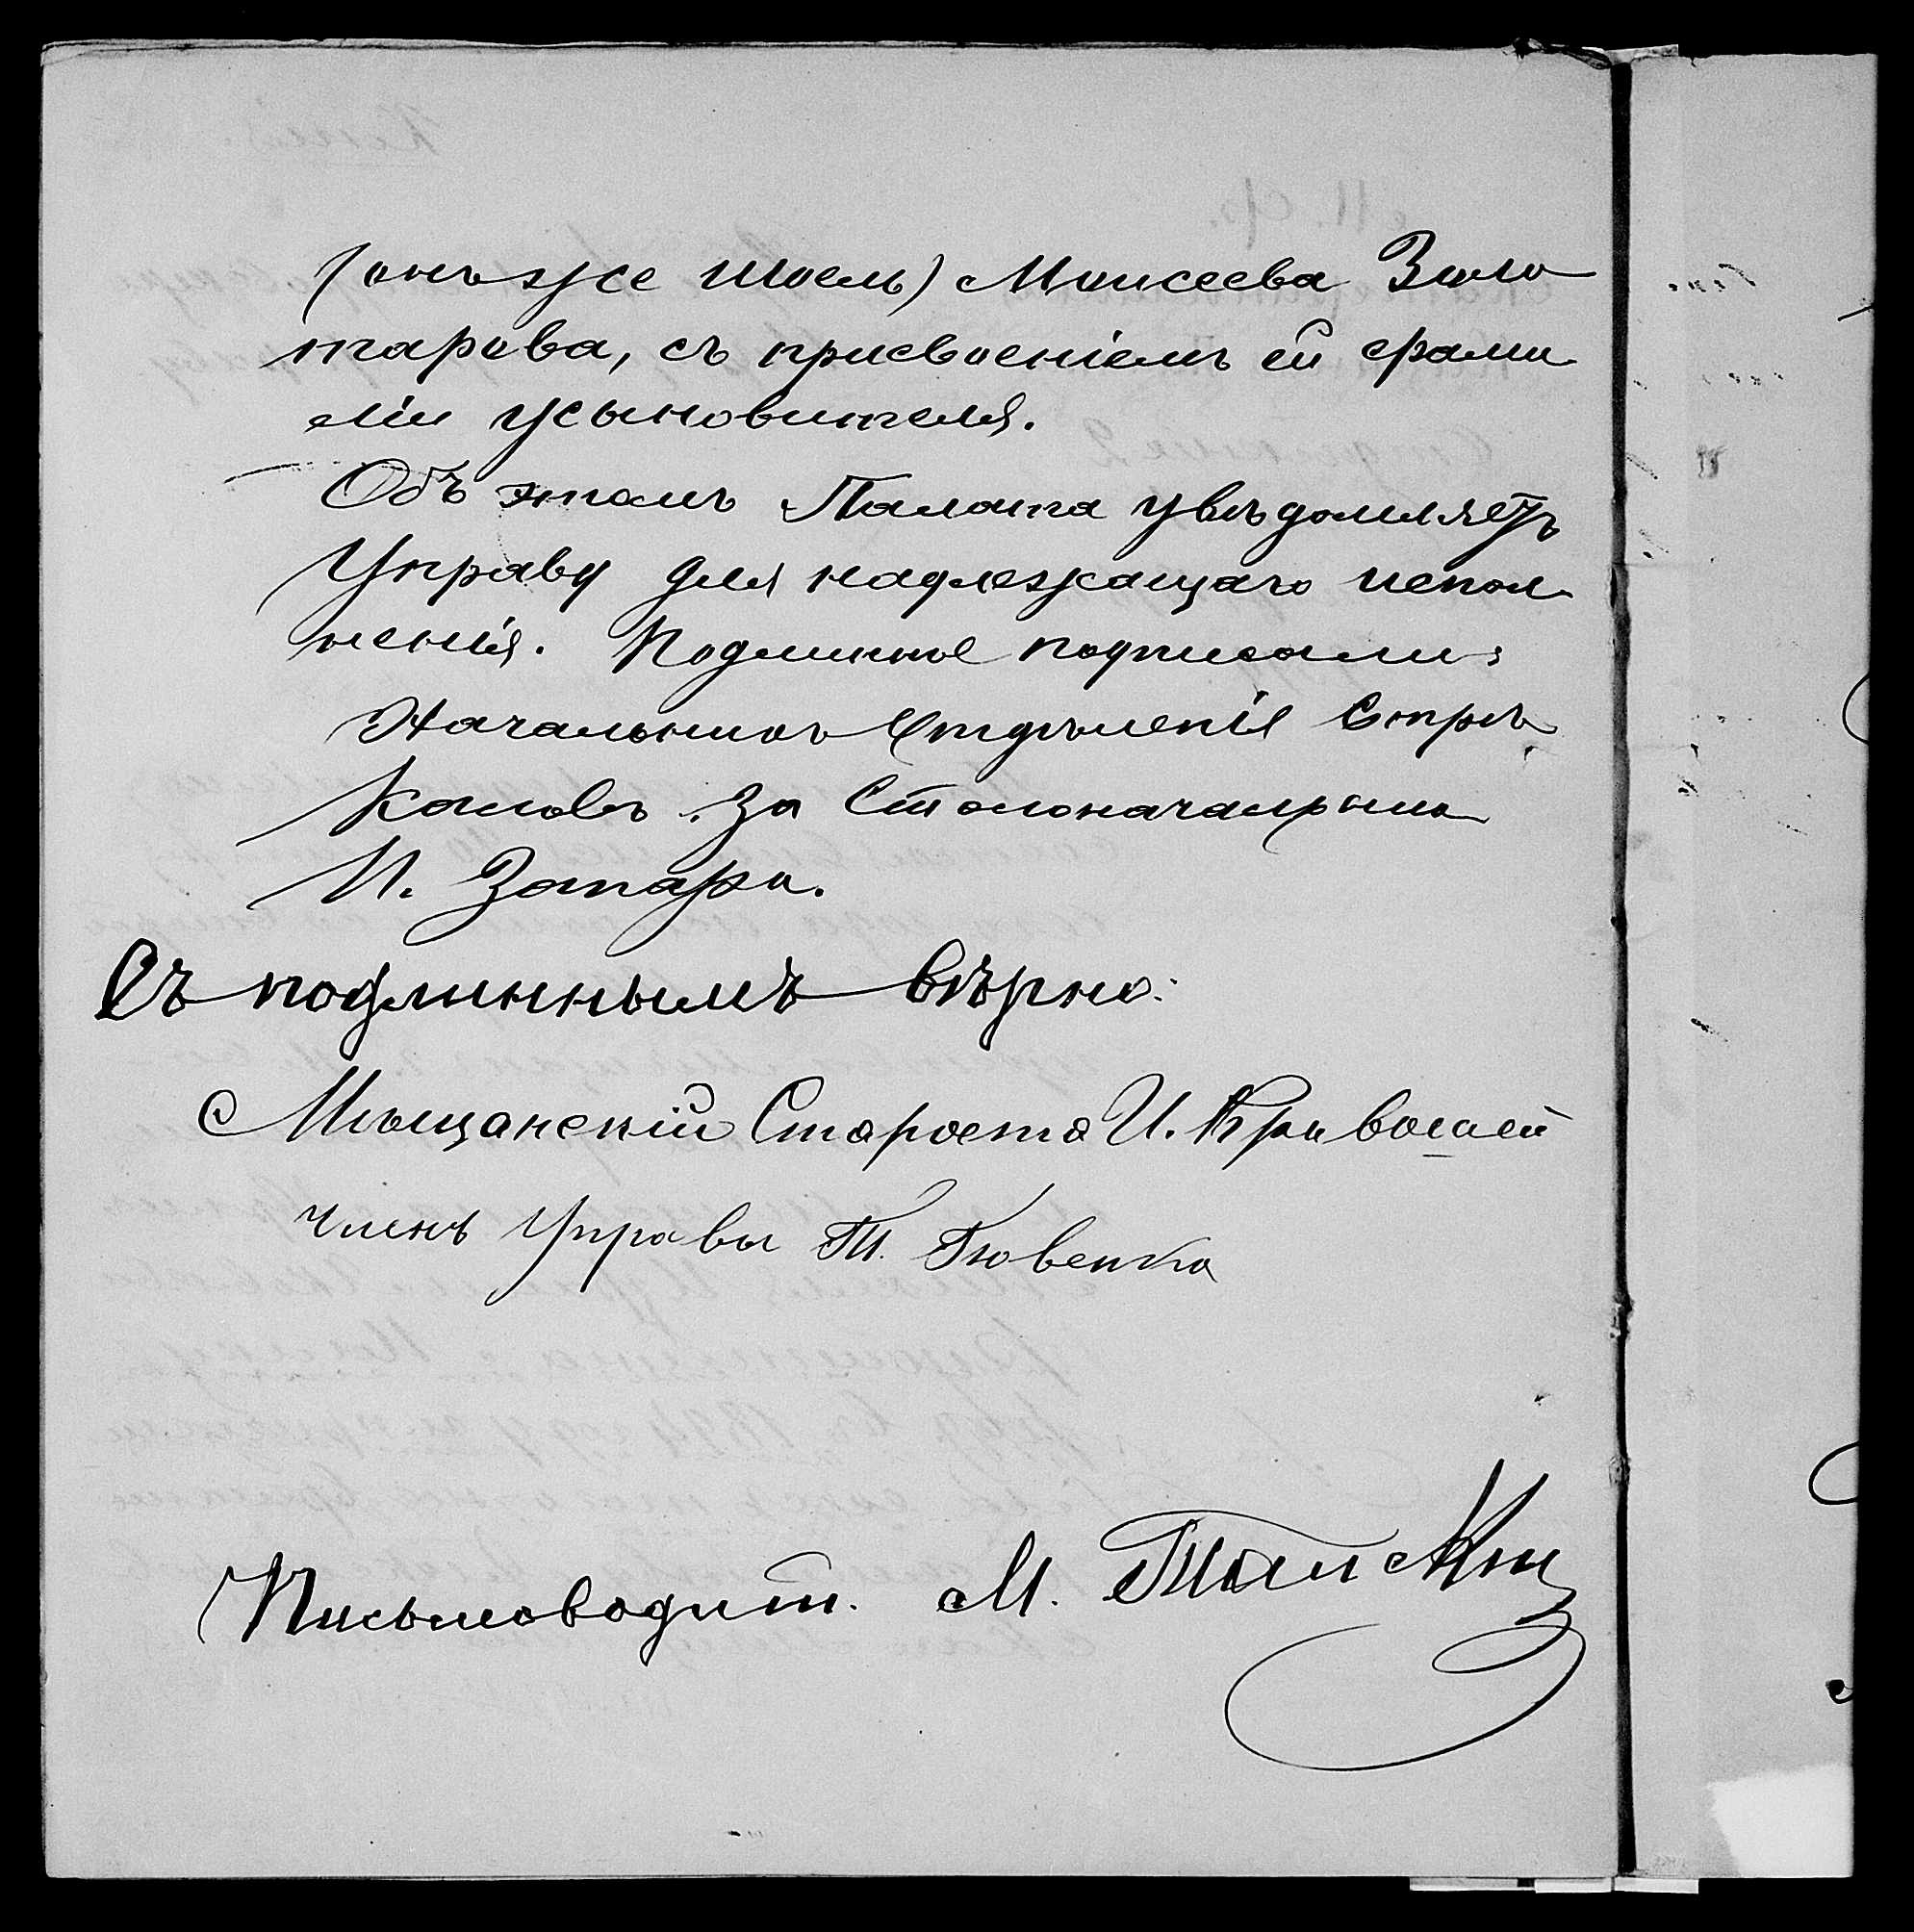 (онъ же Шоель) Моисеева Золо
тарова, съ присвоеніемъ ей фами
ліи усыновителя.
Объ этомъ Палата увѣдомляетъ
Управу для надлежащаго испол
ненія. Подлинное подписали:
Начальникъ Отдѣленія Стрѣ
каловъ. За Столоначальника
И. Запара.
Съ подлиннымъ вѣрно:
Мѣщанскій Староста И. Кривошей
Членъ Управы Т. Бовенко
Письмоводит. М.